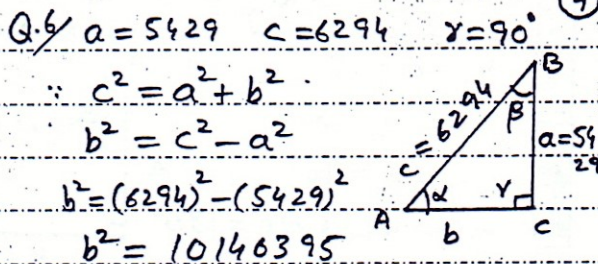 Q.6/ a = 5429 c = 6294 γ = 90°
∵ c² = a² + b²
b² = c² - a²
b² = (6294)² - (5429)²
b² = 10140395
B
β
c = 6294
a = 5429
α
γ
A
b
C